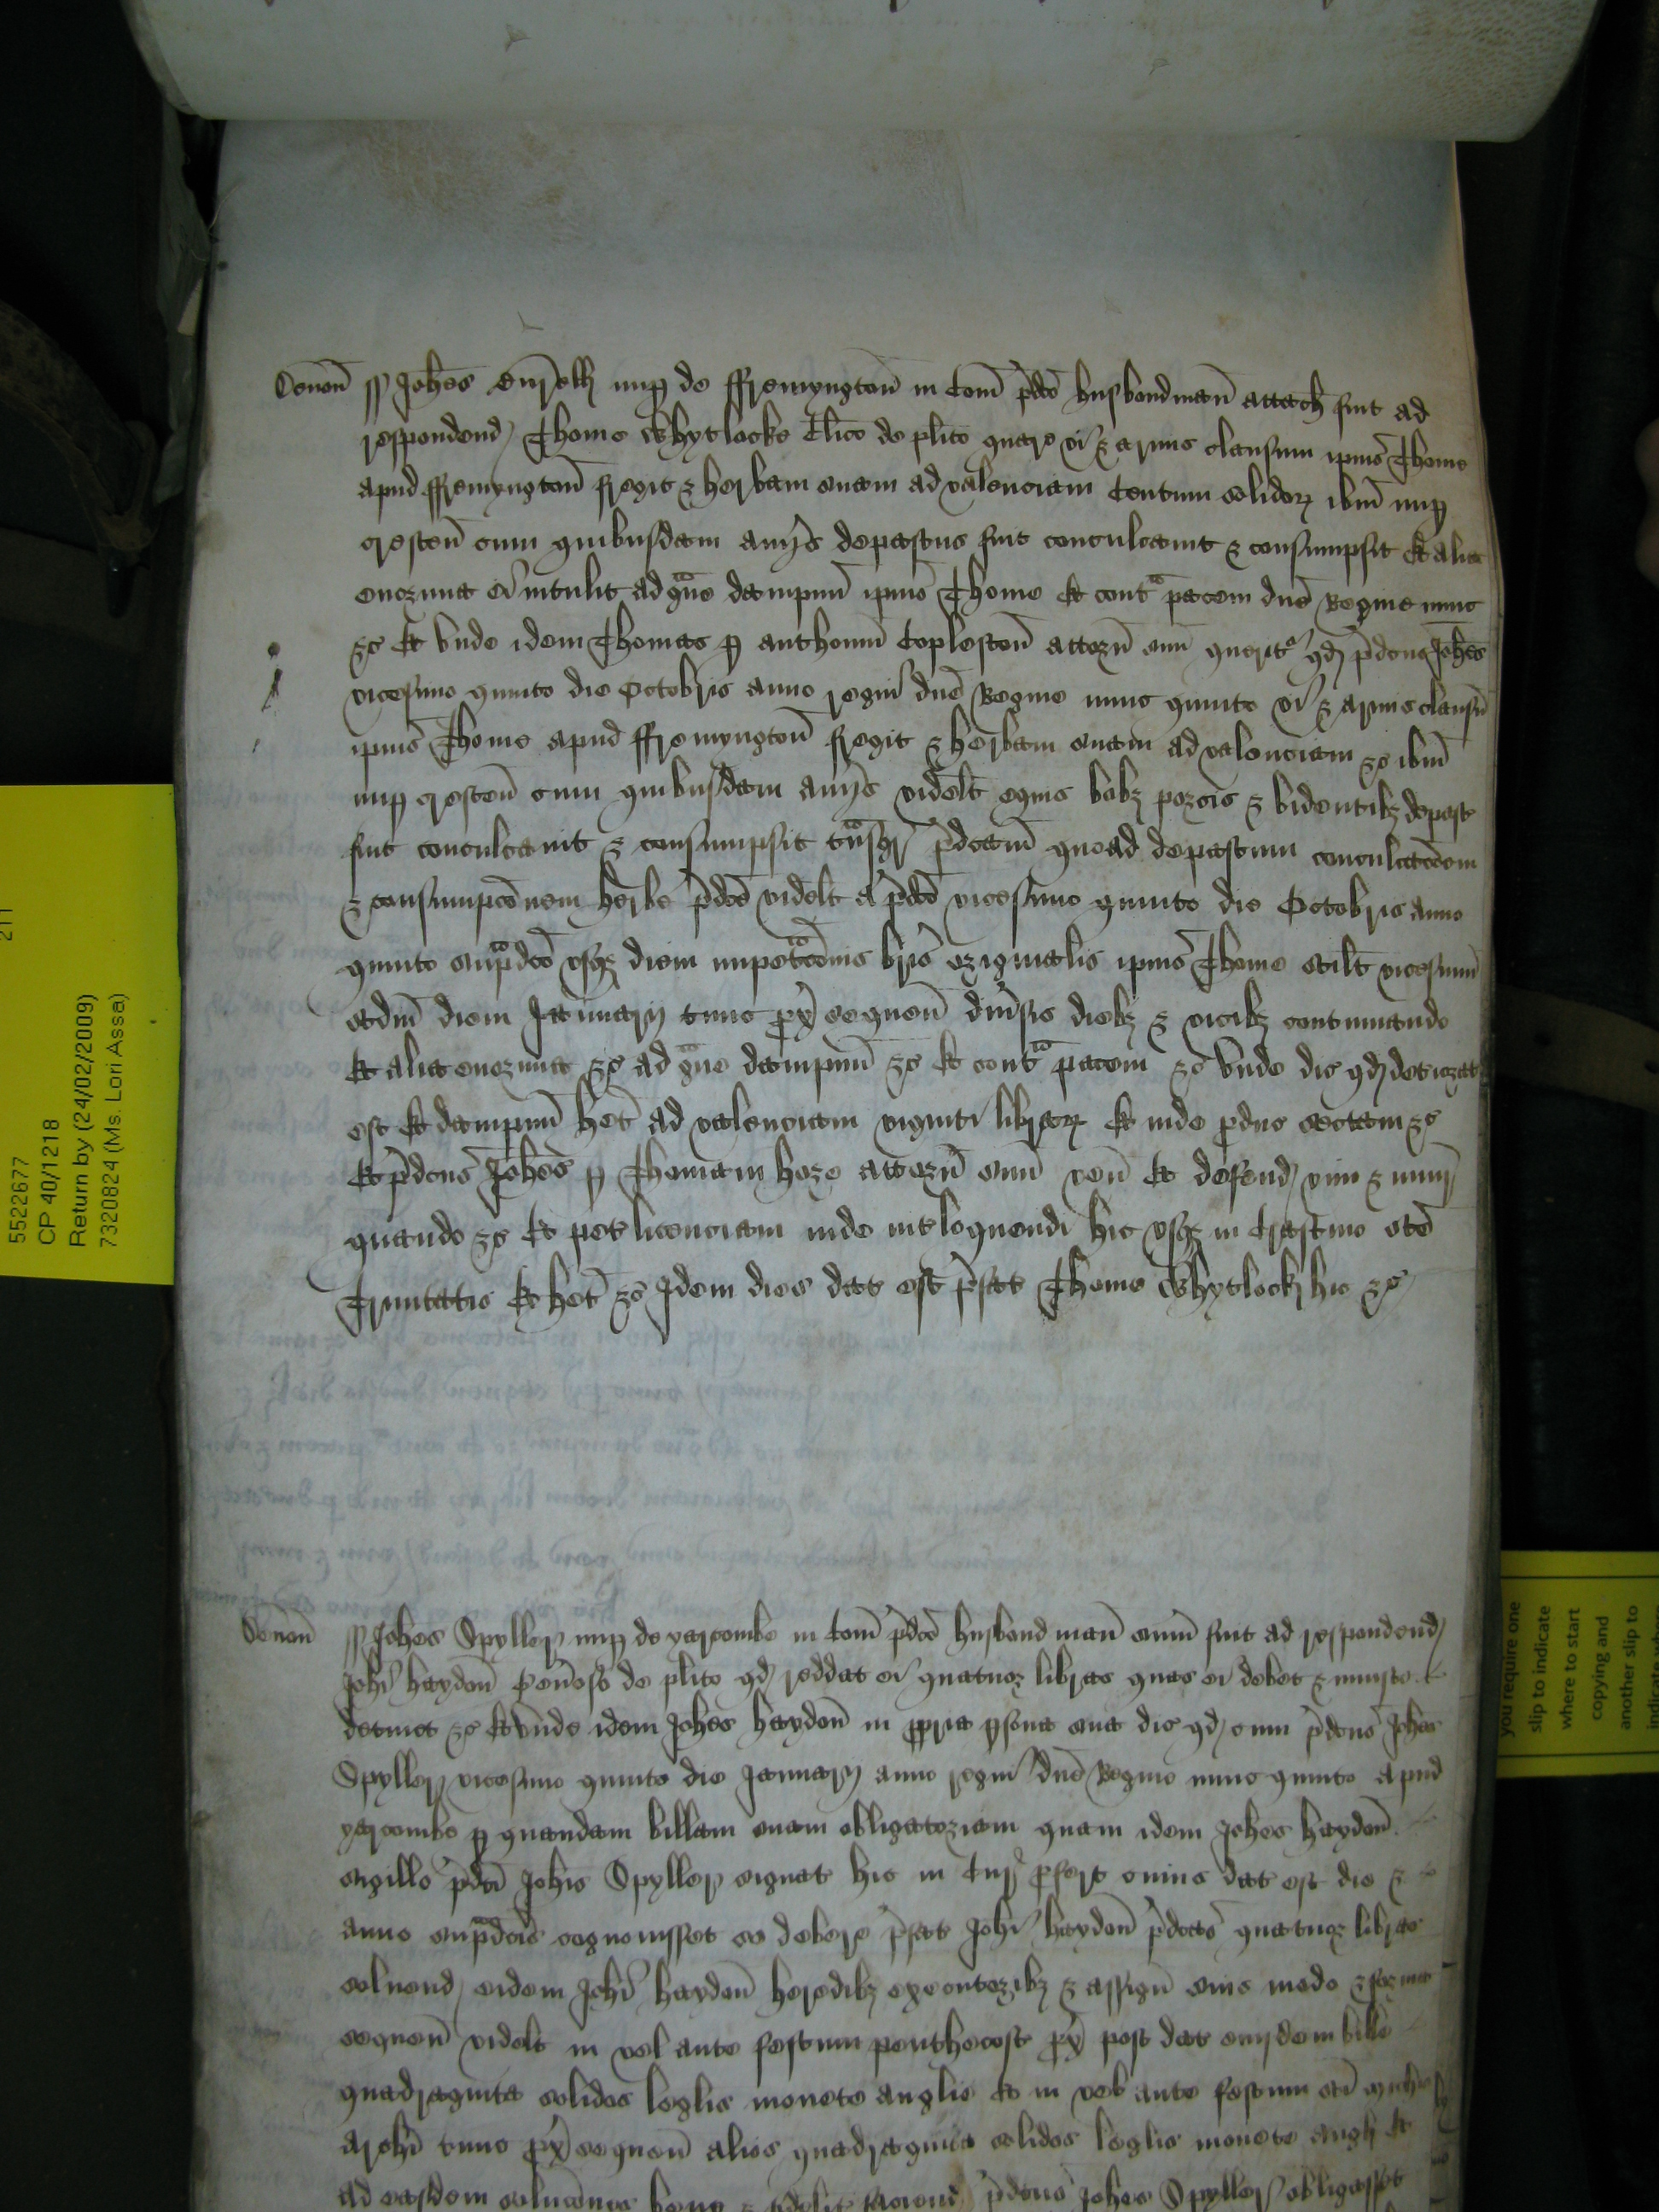 Deuoñ ss Johes nup de ffremyngton in Com pdco husbondman attach fuit ad
respondend Thome Whytlocke Clico de plito quare vi & armis clausum ipius Thome
apud ffremyngton fregit & herbam suam ad valenciam Centum solidoꝝ ibm nup
crescen cum quibusdam aiijs depastus fuit conculcauit & consumpsit Et alia
enormia ei intulit ad gue dampnu ipius Thome Et cont pacem dne Regine nunc
&c Et vnde idem Thomas p Anthoniu Coplestoñ attorñ suu querit qd pdcus Johes
vicesimo quinto die Octobris anno regni dne Regine nunc quinto vi & armis clausu
ipius Thome apud ffremyngton fregit & herbam suam ad valenciam &c ibm
nup cresceñ cum quibusdam aiijs videlt equis bobz porcis & bidentibz depast
fuit conculcauit & consumpsit tnsgr pdcam quoad depastum conculcacoem
& consumpcoem herbe pdce videlt a pdco vicesimo quinto die Octobris anno
quinto supdco vsqz diem impetracois bris originalis ipius Thome scilt vicesimu
scdm diem Januarij tunc px sequeñ diusis diebz & vicibz continuando
Et alia enormia &c ad gue dampnu &c Et cont pacem &c vnde dic qd deteriorat
est Et dampnu het ad valenciam viginti libraꝝ Et inde pduc sectam &c
Et pdcus Johes p Thomam hore attorñ suu veñ Et defend vim & iniur
quando &c Et pet licenciam inde intloquendi hic vsqz in Crastino sce
Trinitatis Et het &c Idem dies dat est pfat Thome Whytlock hic &c
Deuoñ ss Johes Spyller nup de yarcombe in Com pdco husbondmañ sum fuit ad respondend
Johi haydoñ de plito qd reddat ei quatuor libras quas ei debet & iniuste
detinet &c Et vnde idem Johes haydoñ in ppria psona sua dic qd cum pdcus Johes
Spyller vicesimo quinto die Januarij anno regni dne Regine nunc quinto apud
yarcombe p quandam billam suam obligatoriam quam idem Johes haydoñ
sigillo pdci Johis Spyller signat hic in Cur pfert cuius dat est die &
anno supdcis cognouisset se debere pfat Johi haydoñ pdcas quatuor libras
soluend eidem Johi haydoñ heredibz executoribz & assigñ suis modo & forma
sequeñ videlt in vel ante festum penthecost px post dat eiusdem bille
quadraginta solidos leglis monete anglie Et in vel ante festum sci
archi tunc px sequeñ alios quadraginta solidos leglis monete angl Et
ad easdem solucoes bene & fidelit faciend pdcus Johes Spyller obligasset
5522677
CP 40/1218
Return by (24/02/2009)
7320824 (Ms. Lori Assa)
211
you require one
slip to indicate
where to start
copying and
another slip to
indicate where